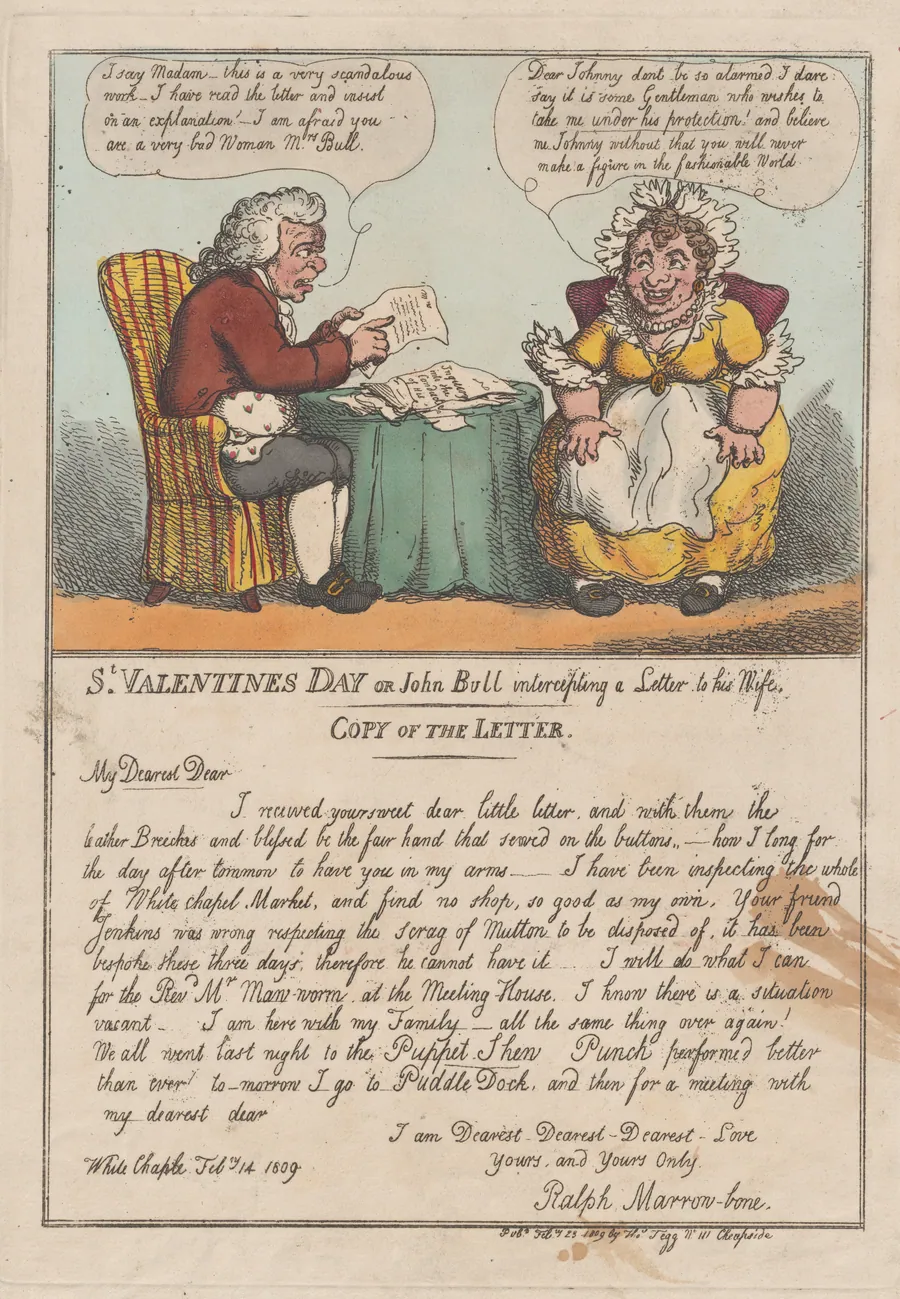 I say Madam – this is a very scandalous
work – I have read the letter and insist
on an explanation! – I am afraid you
are a very bad Woman Mrs Bull.
Dear Johnny dont be so alarmed I dare
say it is some Gentleman who wishes to
take me under his protection! and believe
me Johnny without that you will never
make a figure in the fashionable World
Inquiry
into the
Conduct
of the
St. VALENTINES DAY OR John Bull intercepting a Letter to his Wife.
COPY OF THE LETTER.
My Dearest Dear
I received your sweet dear little letter, and with them the
leather Breeches and blessed be the fair hand that sewed on the buttons,, — how I long for
the day after tommon to have you in my arms — I have been inspecting the whole
of White chapel Market, and find no shop, so good as my own, Your friend
Jenkins was wrong respecting the scrag of Mutton to be disposed of, it has been
bespoke these three days, therefore he cannot have it I will do what I can
for the Revd Mr Maw-worm at the Meeting House. I know there is a situation
vacant – I am here with my Family – all the same thing over again!
We all went last night to the Puppet Shew Punch performed better
than ever! to-morrow I go to Puddle Dock, and then for a meeting with
my dearest dear
I am Dearest - Dearest - Dearest - Love
Yours, and Yours Only.
White Chaple Feby 14 1809
Ralph Marrow-bone.
Pubd Feby 23 1809 by Thos Tegg No 111 Cheapside